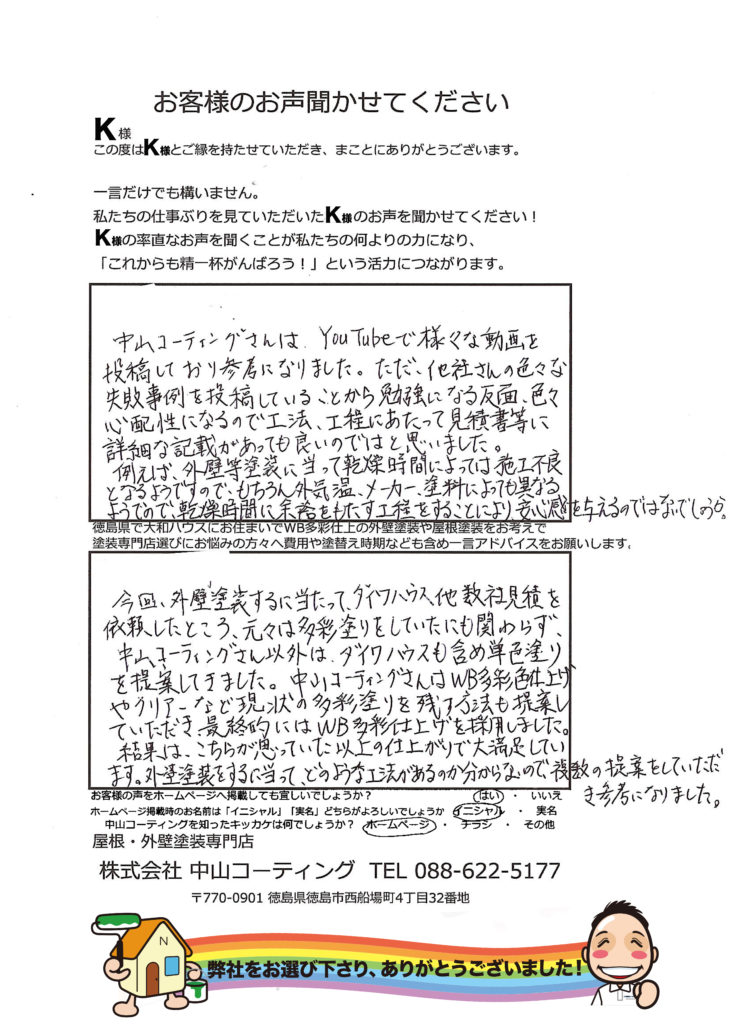 お客様のお声聞かせてください
K様
この度はK様とご縁を持たせていただき、まことにありがとうございます。
一言だけでも構いません。
私たちの仕事ぶりを見ていただいたK様のお声を聞かせてください！
K様の率直なお声を聞くことが私たちの何よりの力になり、
「これからも精一杯がんばろう！」という活力につながります。
中山コーティングさんは、YouTubeで様々な動画を
投稿しており参考になりました。ただ、他社さんの色々な
失敗事例を投稿していることから勉強になる反面、色々
心配性になるので工法、工程にあたって見積書等に
詳細な記載があっても良いのではと思いました。
例えば、外壁等塗装に当って乾燥時間によっては施工不良
となるようですので、もちろん外気温、メーカー、塗料によっても異なる
ようでので乾燥時間に余裕をもたす工程をすることにより安心感を与えるのではないでしょうか。
徳島県で大和ハウスにお住まいでWB多彩仕上の外壁塗装や屋根塗装をお考えで
塗装専門店選びにお悩みの方々へ費用や塗替え時期なども含め一言アドバイスをお願いします。
今回、外壁塗装するに当たって、ダイワハウス、他数社見積を
依頼したところ、元々は多彩塗りをしていたにも関わらず、
中山コーティングさん以外は、ダイワハウスも含め単色塗り
を提案してきました。中山コーティングさんはWB多彩色仕上げ
やクリアーなど現状の多彩塗りを残す方法も提案し
ていただき最終的にはWB多彩仕上げを採用しました。
結果は、こちらが思っていた以上の仕上がりで大満足してい
ます。外壁塗装をするに当って、どのような工法があるのか分からないので、複数の提案をしていただ
き参考になりました。
お客様の声をホームページへ掲載しても宜しいでしょうか？ はい ・ いいえ
ホームページ掲載時のお名前は「イニシャル」「実名」どちらがよろしいでしょうか イニシャル ・ 実名
中山コーティングを知ったキッカケは何でしょうか？ ホームページ ・ チラシ ・ その他
屋根・外壁塗装専門店
株式会社 中山コーティング TEL 088-622-5177
〒770-0901 徳島県徳島市西船場町4丁目32番地
N
弊社をお選び下さり、ありがとうございました！